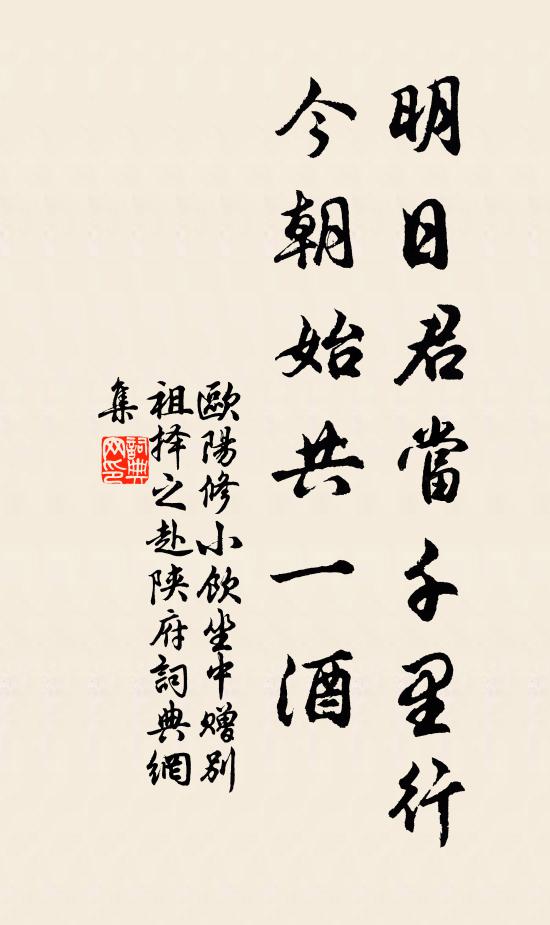 明日君當千里行
今朝始共一酒
歐陽修小飲坐中赠别
祖择之赴陕府詞典網
集
詞典
网印